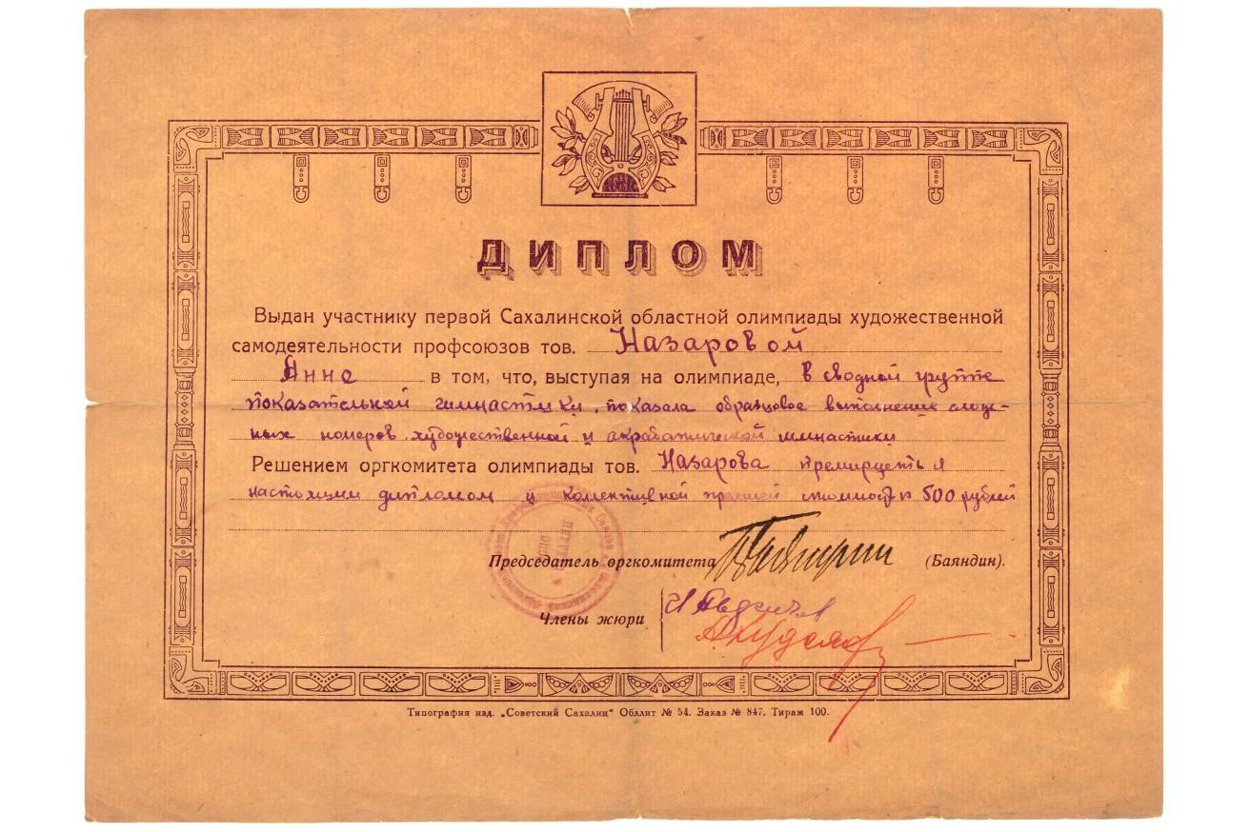 ДИПЛОМ
Выдан участнику первой Сахалинской областной олимпиады художественной
самодеятельности профсоюзов тов. Назаровой
Анне в том, что, выступая на олимпиаде, в сводной группе
показательной гимнастики, показала образцовое выполнение слож-
ных номеров художественной и акрабатической гимнастики
Решением оргкомитета олимпиады тов. Назарова
настоящим дипломом и колективной премией 500 рублей
Председатель оргкомитета (Баяндин).
Члены жюри
Типография изд. „Советский Сахалин“ Обллит № 54. Заказ № 847. Тираж 100.